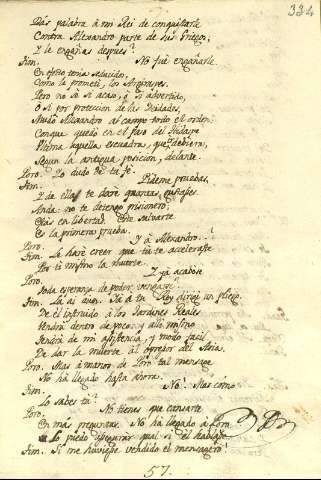 334
Das palabra á mi Rei de conquistarle
Contra Alexandro parte de sus Griegos;
Y le engañas despues?
Tim. No fué engañarle.
En efecto tenia seducidos,
Como la prometí, los Argiraspes.
Pero no sé si acaso, ó si advertido,
O si por proteccion de las Deidades,
Mudó Alexandro al campo todo el orden:
Conque quedó en el paso del Hidaspe
Ultima aquella esquadra, que debiera,
Segun la antigua posicion, delante.
Poro. Yo dudo de tu fe.
Tim. Pideme pruebas,
Y de ellas te daré quantas gustases
Anda: no te detengo prisionero;
Estás en libertad. De salvarte
Es la primera prueba.
Poro. Y á Alexandro..?
Tim. Le haré creer que tú te aceleraste
Por ti mismo la muerte.
Poro. Y ya acabose
Toda esperanza de poder vengarse?
Tim. La ai aun. Ya á tu Rey dirigí un pliego.
De él instruido á los Jardines Reales
Vendrá dentro de poco; y allí mismo
Tendrá de mi asistencia, y modo facil
De dar la muerte al opresor del Asia.
Poro. Mas á manos de Poro tal mensage
No há llegado hasta ahora.
Tim. No? Mas cómo
Lo sabes tú?
Poro. No tienes que cansarte
En mas preguntas. No há llegado á Poro.
Lo puedo asegurar qual si él hablase
Tim. Si me huviese vendido el mensagero!
57.